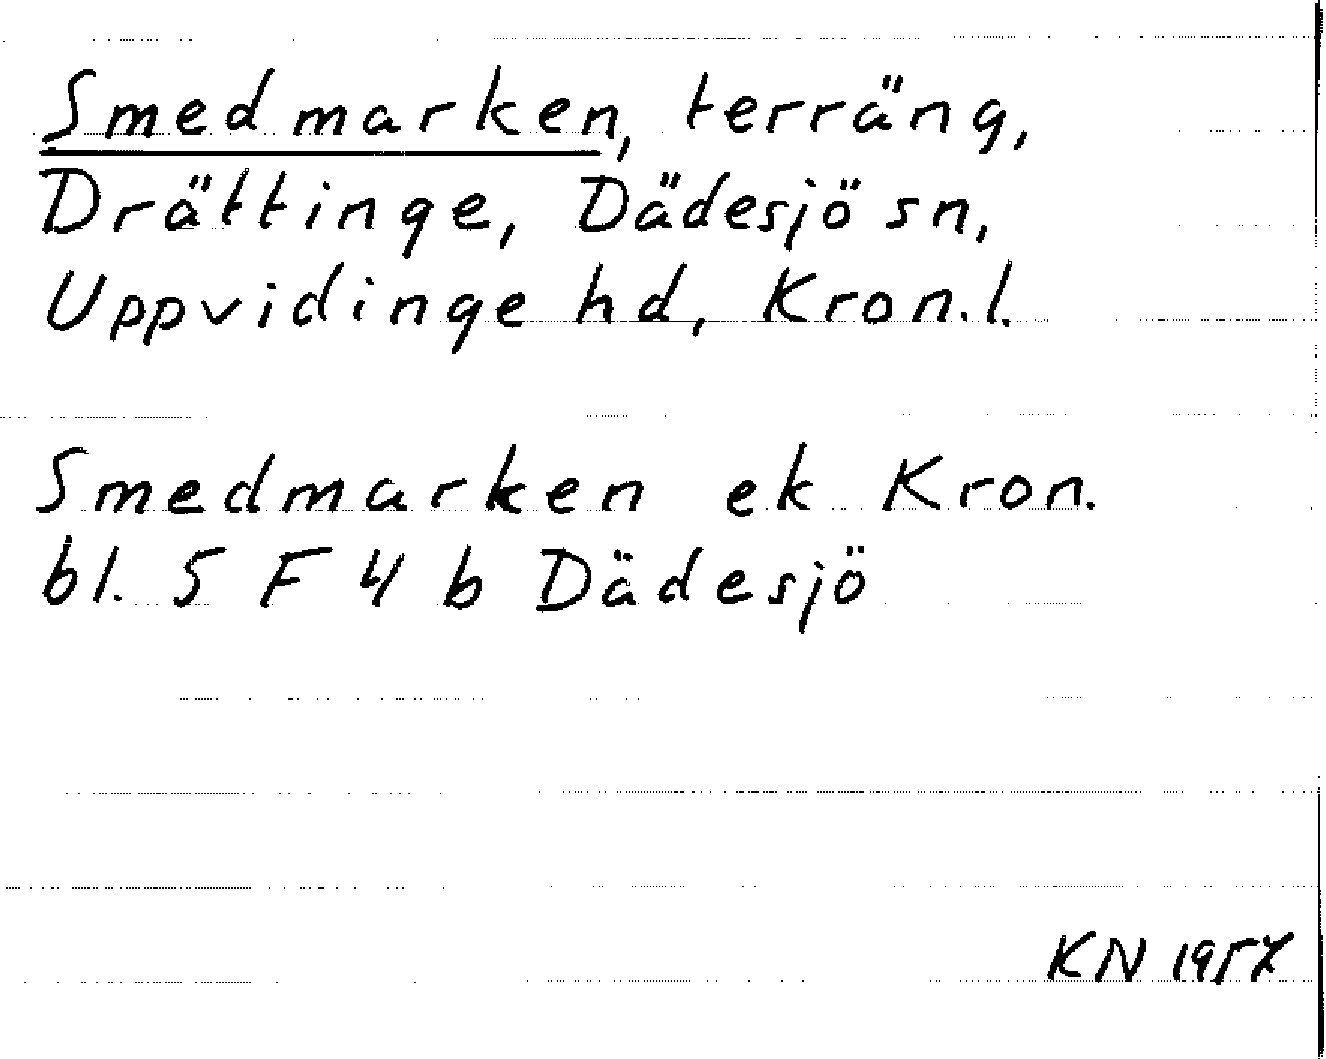 Smedmarken, terräng,
Drättinge, Dädesjö sn,
Uppvidinge hd, Kron.l.
Smedmarken ek Kron.
bl. 5 F 4 b Dädesjö
KN 1957